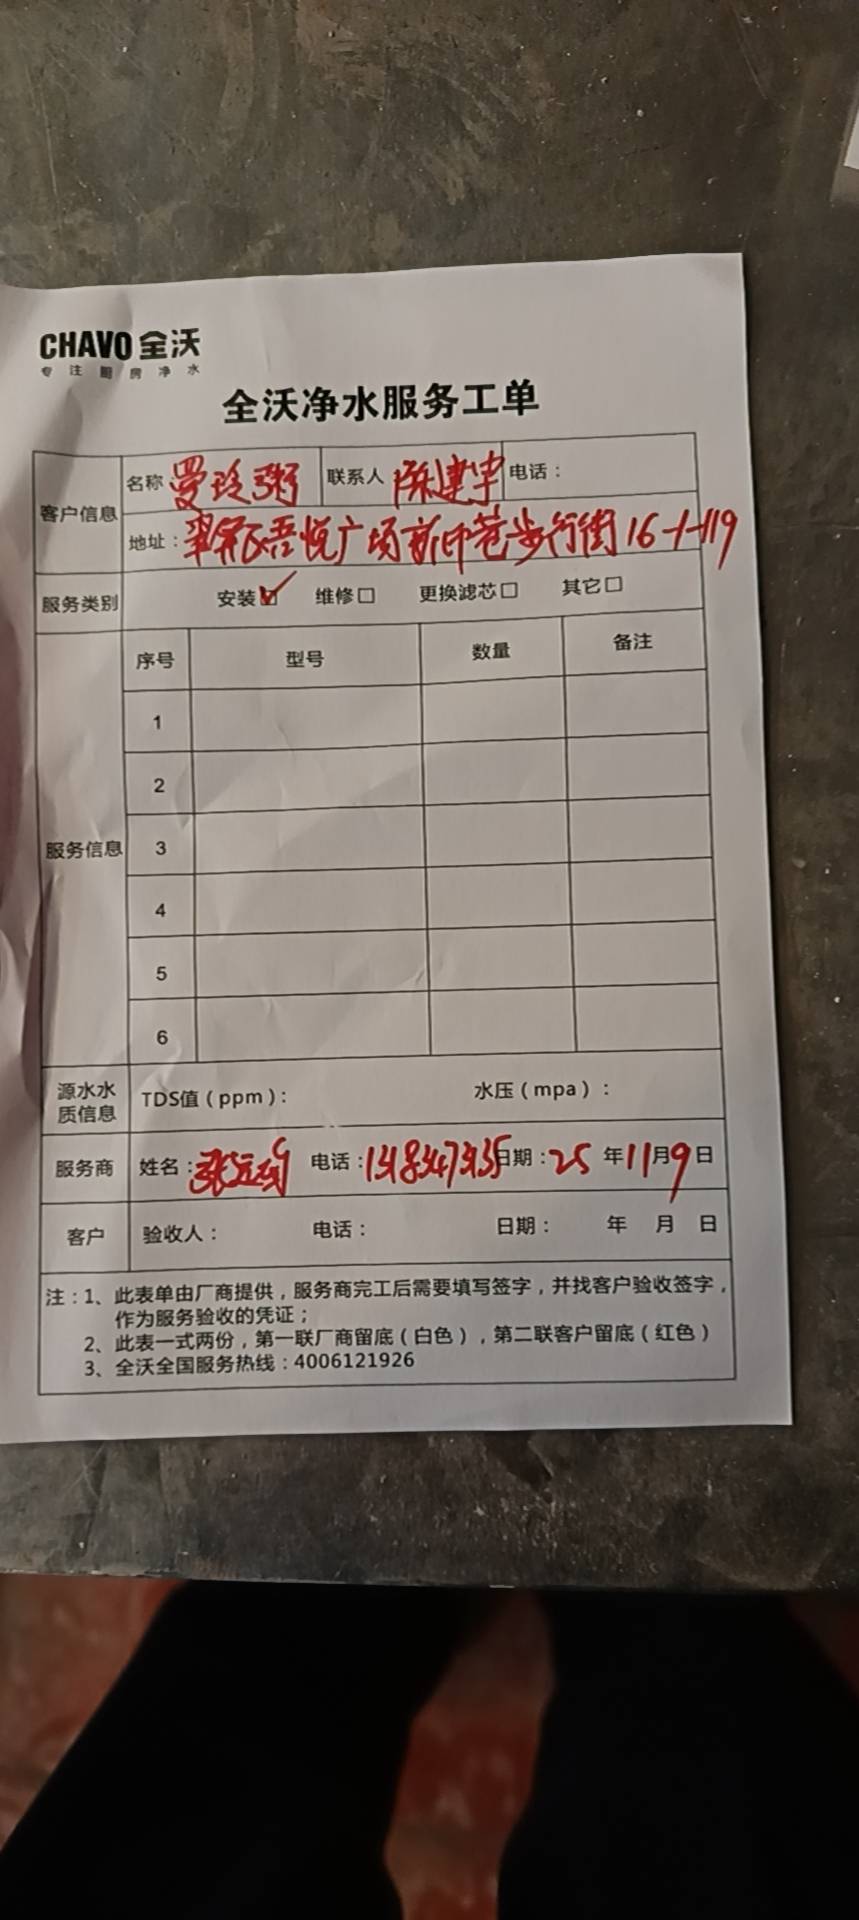 CHAVO 全沃
专注厨房净水
全沃净水服务工单
客户信息 名称 曼玲粥 联系人 陈建华 电话：
地址：翠屏区吾悦广场新印巷步行街16-1-119
服务类别 安装☑ 维修□ 更换滤芯□ 其它□
服务信息 序号 型号 数量 备注
1
2
3
4
5
6
源水水质信息 TDS值（ppm）： 水压（mpa）：
服务商 姓名： 电话： 日期：25 年11月9日
客户 验收人： 电话： 日期： 年 月 日
注：1、此表单由厂商提供，服务商完工后需要填写签字，并找客户验收签字，
作为服务验收的凭证；
2、此表一式两份，第一联厂商留底（白色），第二联客户留底（红色）
3、全沃全国服务热线：4006121926